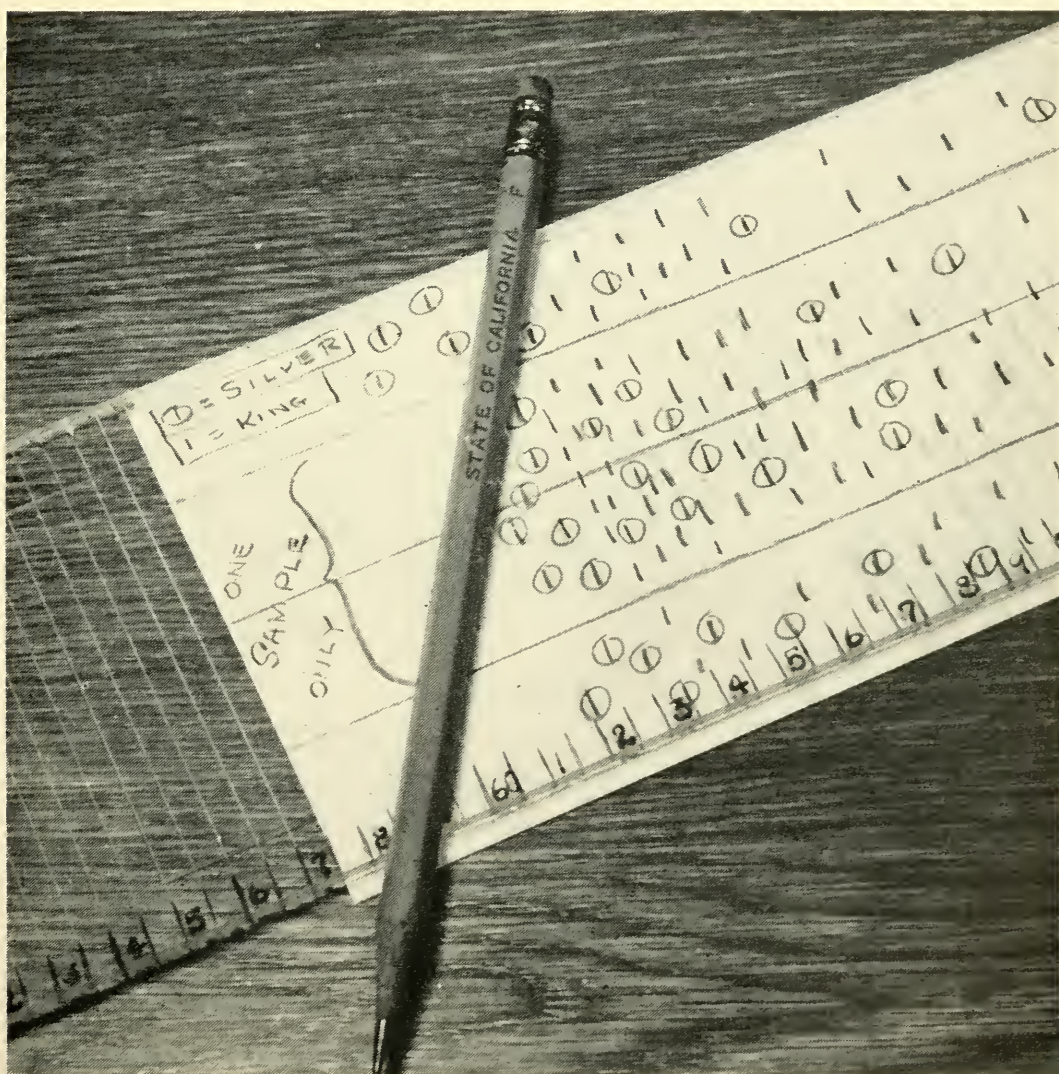 ① = SILVER
1 = KING
ONE
SAMPLE
ONLY
STATE OF CALIFORNIA F
3 4 5 6 7 8
60 1 2 3 4 5 6 7 8 9